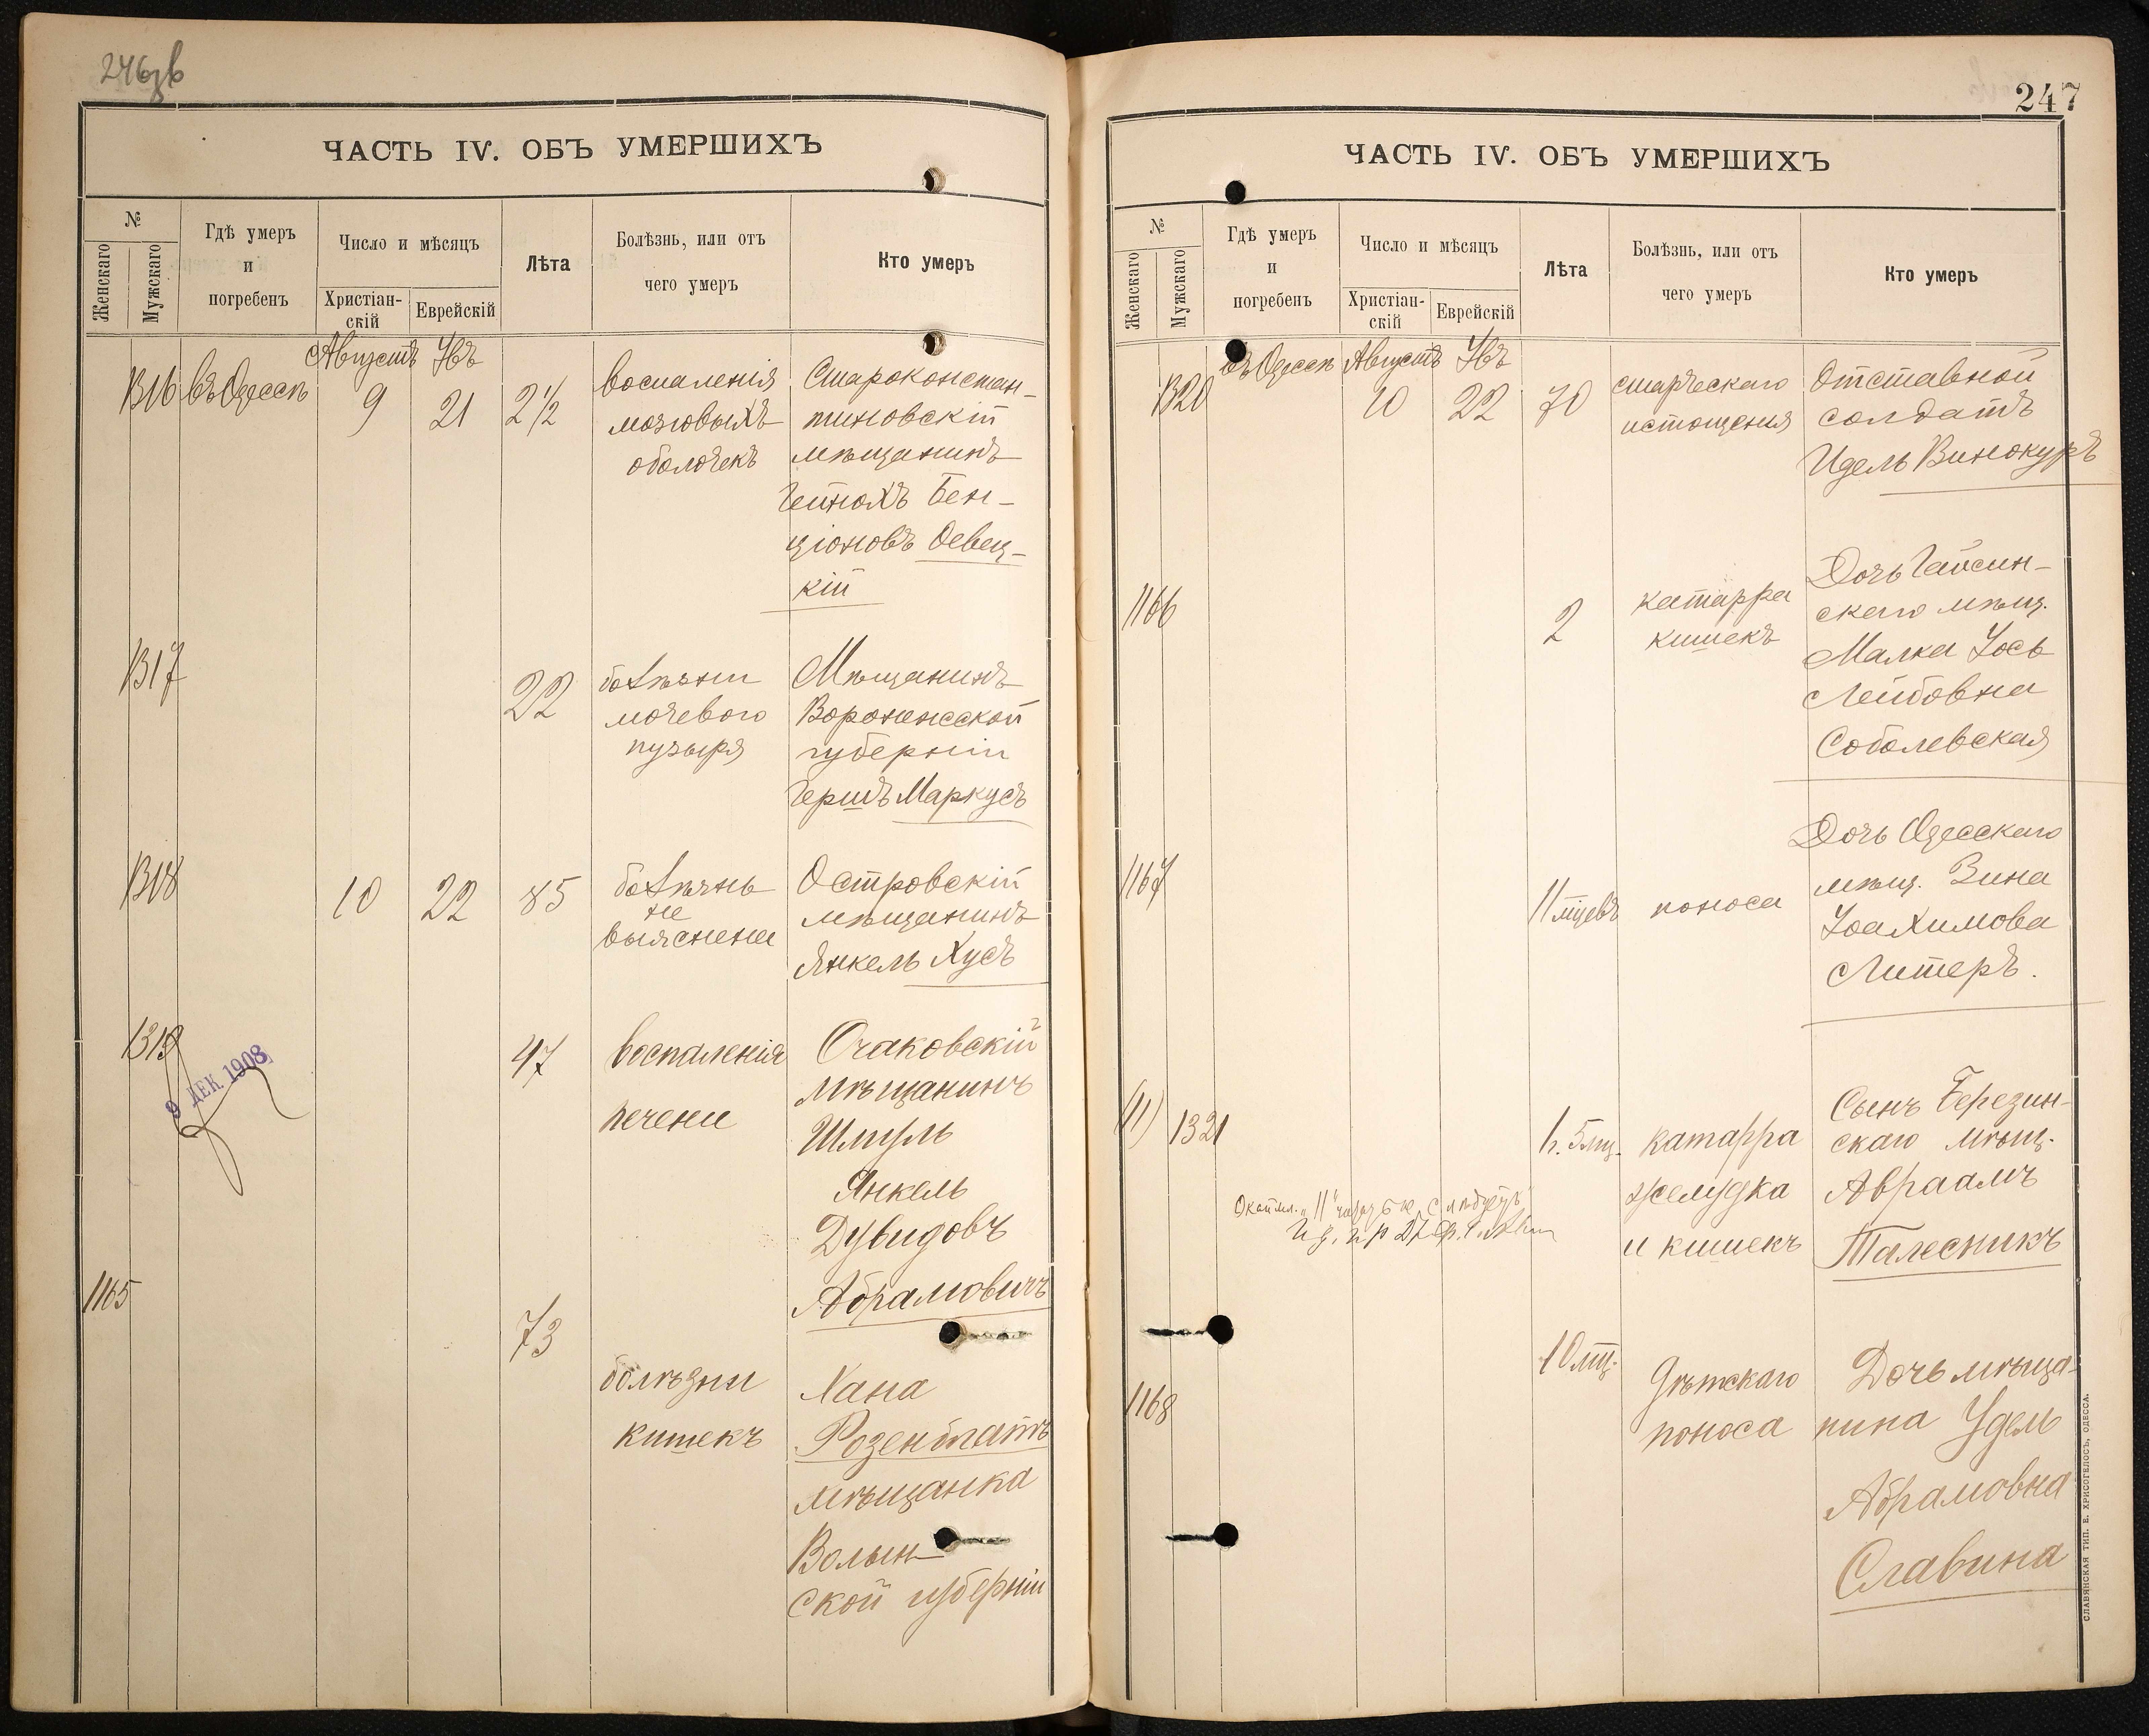 246об
ЧАСТЬ IV. ОБЪ УМЕРШИХЪ
№
Женскаго
Мужскаго
Гдѣ умеръ
и
погребенъ
Число и мѣсяцъ
Христіан-
скій
Еврейскій
Лѣта
Болѣзнь, или отъ
чего умеръ
Кто умеръ
Августъ Увъ
1316 въ Одессѣ 9 21 2½
воспаленія
мозговыхъ
оболочекъ
Староконстан-
тиновскій
мѣщанинъ
Гейнохъ Бен-
ціоновъ Осовец-
кій
1317
22
болѣзни
мочевого
пузыря
Мѣщанинъ
Воронежской
губерніи
Гершъ Маркусъ
1318 10 22 85
болѣзнь
не
выяснена
Островскій
мѣщанинъ
Янкель Хусъ
1319
9 ДЕК. 1908
47
воспаленія
печени
Очаковскій
мѣщанинъ
Шмуль
Янкель
Дувидовъ
Абрамовичъ
1165
73
болѣзни
кишекъ
Хана
Розенблатъ
мѣщанка
Волын-
ской губерніи
247
ЧАСТЬ IV. ОБЪ УМЕРШИХЪ
№
Женскаго
Мужскаго
Гдѣ умеръ
и
погребенъ
Число и мѣсяцъ
Христіан-
скій
Еврейскій
Лѣта
Болѣзнь, или отъ
чего умеръ
Кто умеръ
въ Одессѣ Августъ Увъ
1320 10 22 70
старческаго
истощенія
Отставной
солдатъ
Идель Винокуръ
1166
2
катарра
кишекъ
Дочь Гайсин-
скаго мѣщ.
Малка Іось
Лейбовна
Соболевская
1167
11 мцевъ
поноса
Дочь Одесскаго
мѣщ. Зина
Іоахимова
Литеръ.
(11) 1321
1 г. 5 мц.
катарра
желудка
и кишекъ
Сынъ Березин-
скаго мѣщ.
Авраамъ
Талесникъ
1168
10 мц.
дѣтскаго
поноса
Дочь мѣща-
нина Удель
Абрамовна
Славина
СЛАВЯНСКАЯ ТИП. В. ХРИСОГЕЛОСЪ, ОДЕССА.